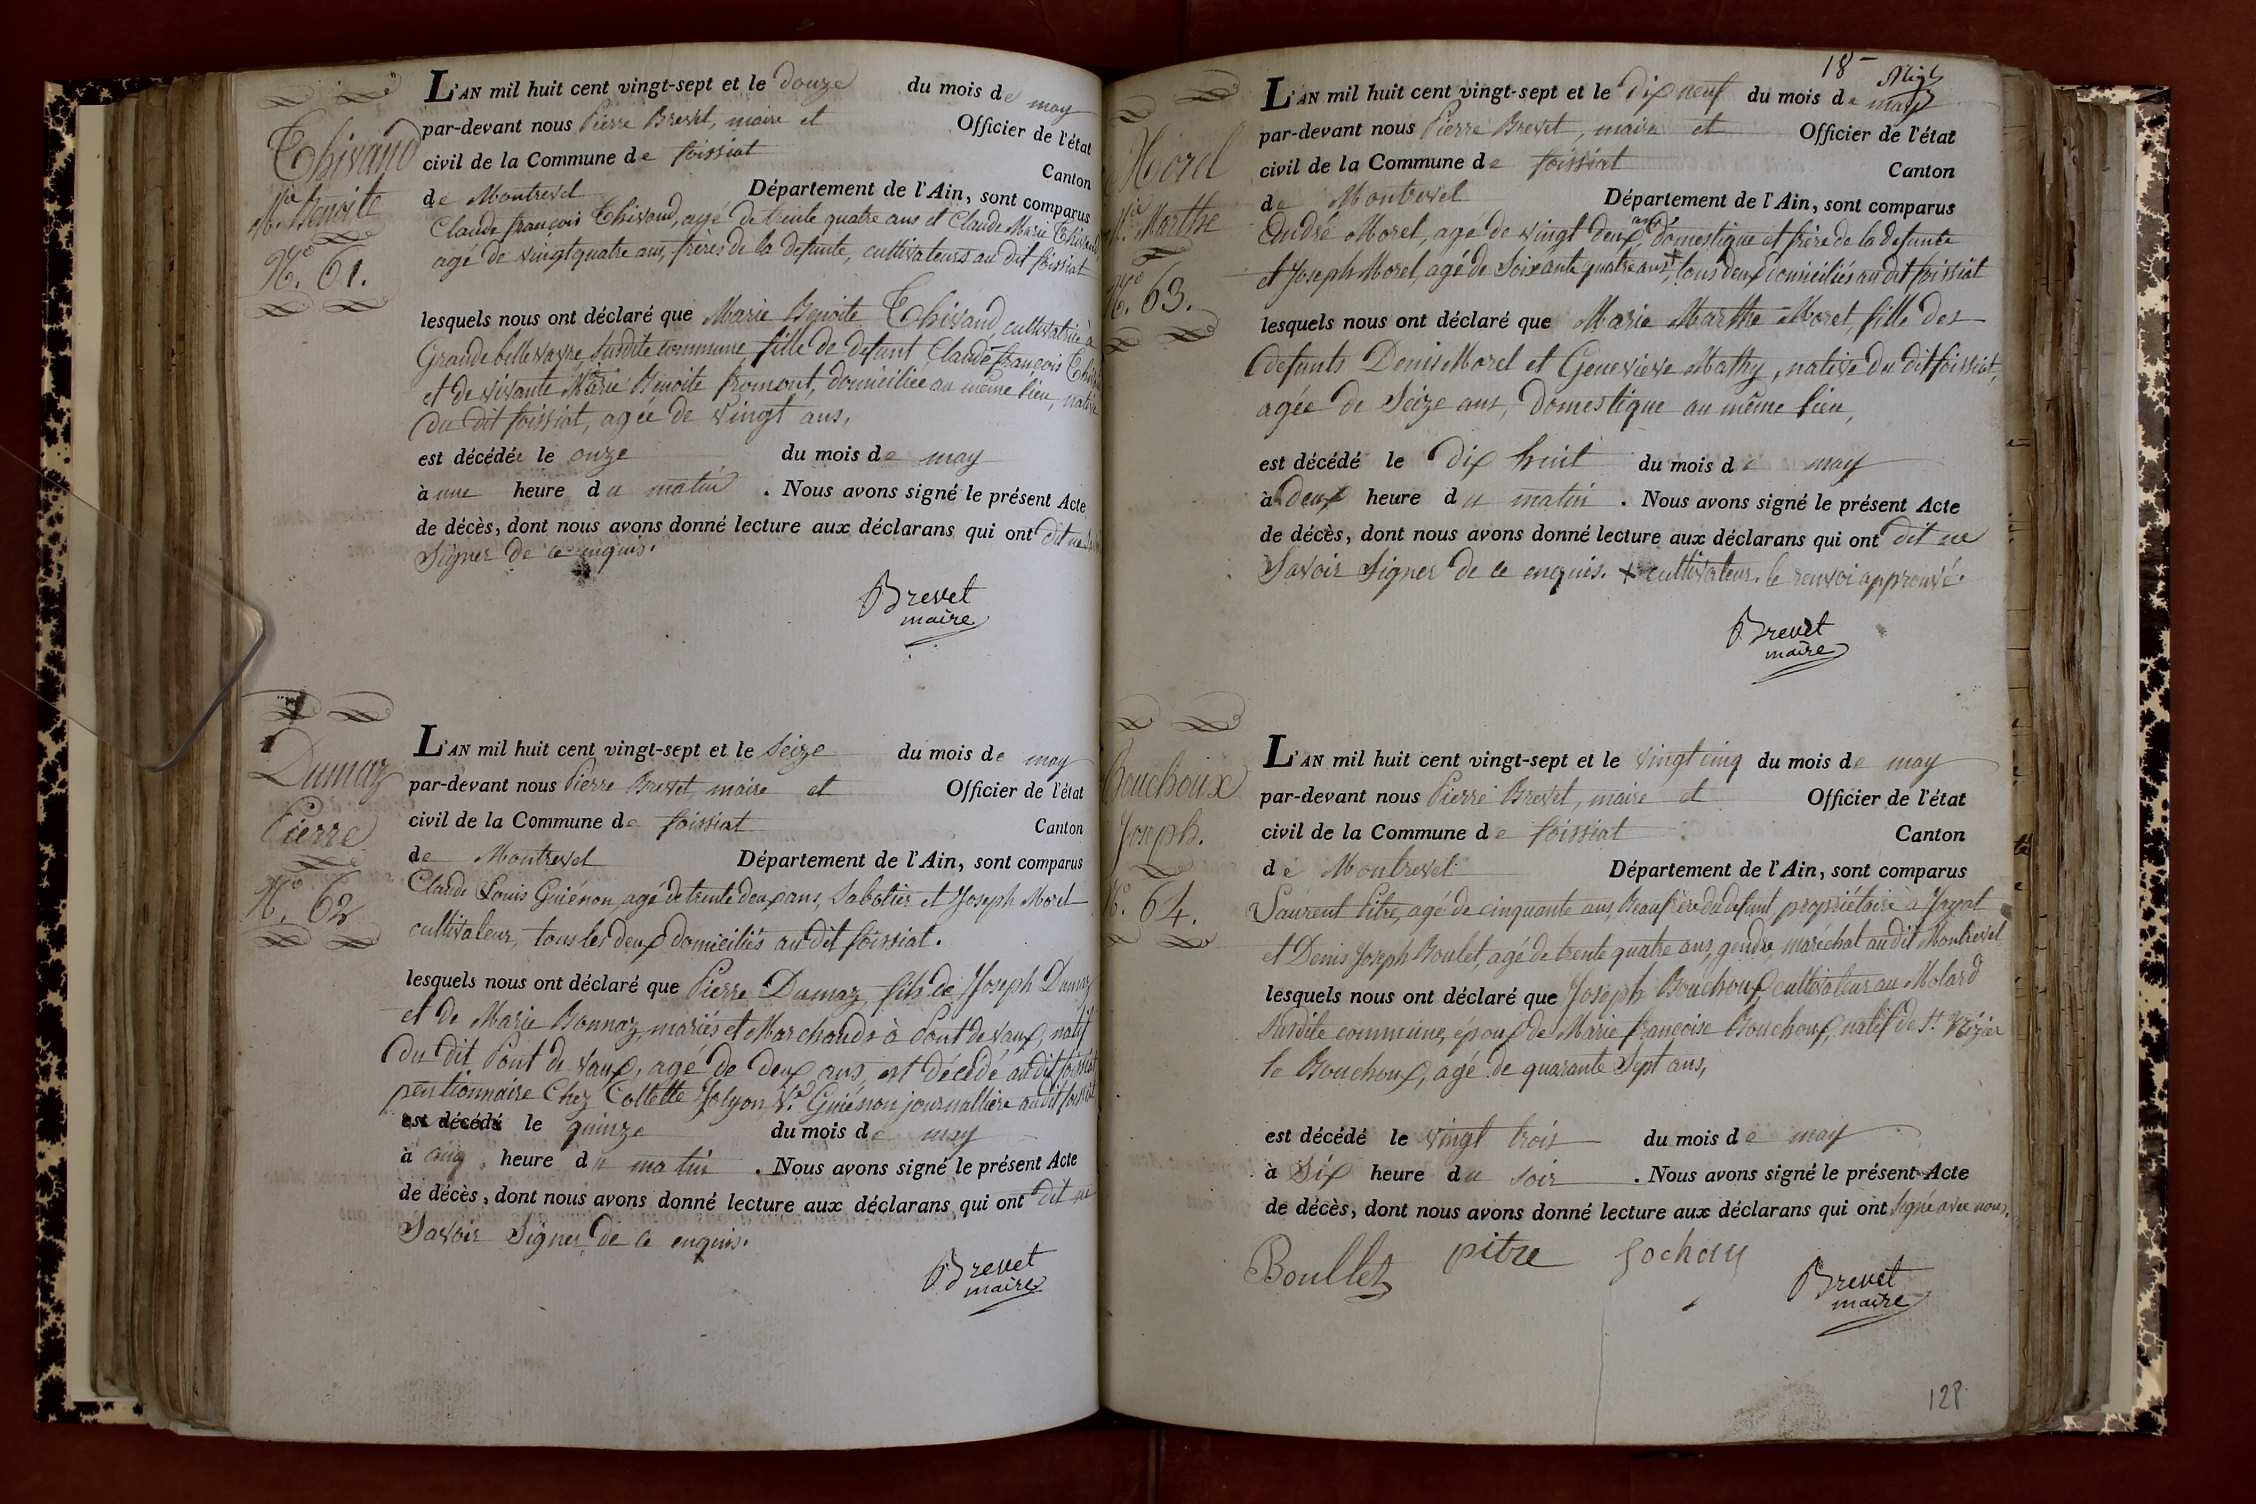 Thivaud
Mie Benoite
No. 61.
L'AN mil huit cent vingt-sept et le douze du mois de may
par-devant nous Pierre Brevet, maire et Officier de l'état
civil de la Commune de foissiat Canton
de Montrevel Département de l'Ain, sont comparus
Claude françois Thivaud, agé de trente quatre ans et Claude Marie Thivaud
agé de vingt quatre ans, frères de la defunte, cultivateurs au dit foissiat
lesquels nous ont déclaré que Marie Benoite Thivaud, cultivatrice à
Grande bellevavre, susdite commune, fille de defunt Claude-françois
et de vivante Marie Benoite fromont, domiciliée au même lieu, native
du dit foissiat, agée de vingt ans,
est décédée le onze du mois de may
à une heure du matin . Nous avons signé le présent Acte
de décès, dont nous avons donné lecture aux déclarans qui ont dit ne
Signer de ce enquis.
Brevet
maire
Dumaz
Pierre
No. 62
L'AN mil huit cent vingt-sept et le Seize du mois de may
par-devant nous Pierre Brevet, maire et Officier de l'état
civil de la Commune de foissiat Canton
de Montrevel Département de l'Ain, sont comparus
Claude Louis Guiénon, agé de trente deux ans, Sabotier et Joseph Morel
cultivateur, tous les deux domiciliés au dit foissiat.
lesquels nous ont déclaré que Pierre Dumaz, fils de Joseph Dumaz
et de Marie Bonnaz, mariés et Marchands à Pont de vaux, natif
du dit Pont de vaux, agé de deux ans, est décédé au dit foissiat
pentionnaire Chez Collette Jolyon Ve. Guiénon journallière au dit foissiat
est décédé le quinze du mois de may
à cinq heure du matin . Nous avons signé le présent Acte
de décès, dont nous avons donné lecture aux déclarans qui ont dit ne
Savoir Signer de ce enquis.
Brevet
maire
18
Morel
Mie Marthe
No. 63.
L'AN mil huit cent vingt-sept et le dix neuf du mois de may
par-devant nous Pierre Brevet, maire et Officier de l'état
civil de la Commune de foissiat Canton
de Montrevel Département de l'Ain, sont comparus
André Morel, agé de vingt deux ans, domestique et frère de la defunte
et Joseph Morel, agé de Soixante quatre ans +, tous deux domiciliés au dit foissiat
lesquels nous ont déclaré que Marie Marthe Morel, fille des
defunts Denis Morel et Genevieve Mathy, native du dit foissiat,
agée de Seize ans, domestique au même lieu,
est décédé le dix huit du mois de may
à deux heure du matin . Nous avons signé le présent Acte
de décès, dont nous avons donné lecture aux déclarans qui ont dit ne
Savoir Signer de ce enquis. + cultivateur. le renvoi approuvé.
Brevet
maire
Bouchoux
Joseph.
No. 64.
L'AN mil huit cent vingt-sept et le vingt cinq du mois de may
par-devant nous Pierre Brevet, maire et Officier de l'état
civil de la Commune de foissiat Canton
de Montrevel Département de l'Ain, sont comparus
Laurent Pitre, agé de cinquante ans, Beaufrère du defunt, propriétaire à Jayat
et Denis Joseph Boulet, agé de trente quatre ans, gendre, maréchal au dit Montrevel
lesquels nous ont déclaré que Joseph Bouchoux, cultivateur au Molard
susdite commune, époux de Marie françoise Bouchoux, natif de St. Nizier
le Bouchoux, agé de quarante Sept ans,
est décédé le vingt trois du mois de may
à Six heure du soir . Nous avons signé le présent Acte
de décès, dont nous avons donné lecture aux déclarans qui ont signé avec nous.
Boullet pitre
Brevet
maire
128